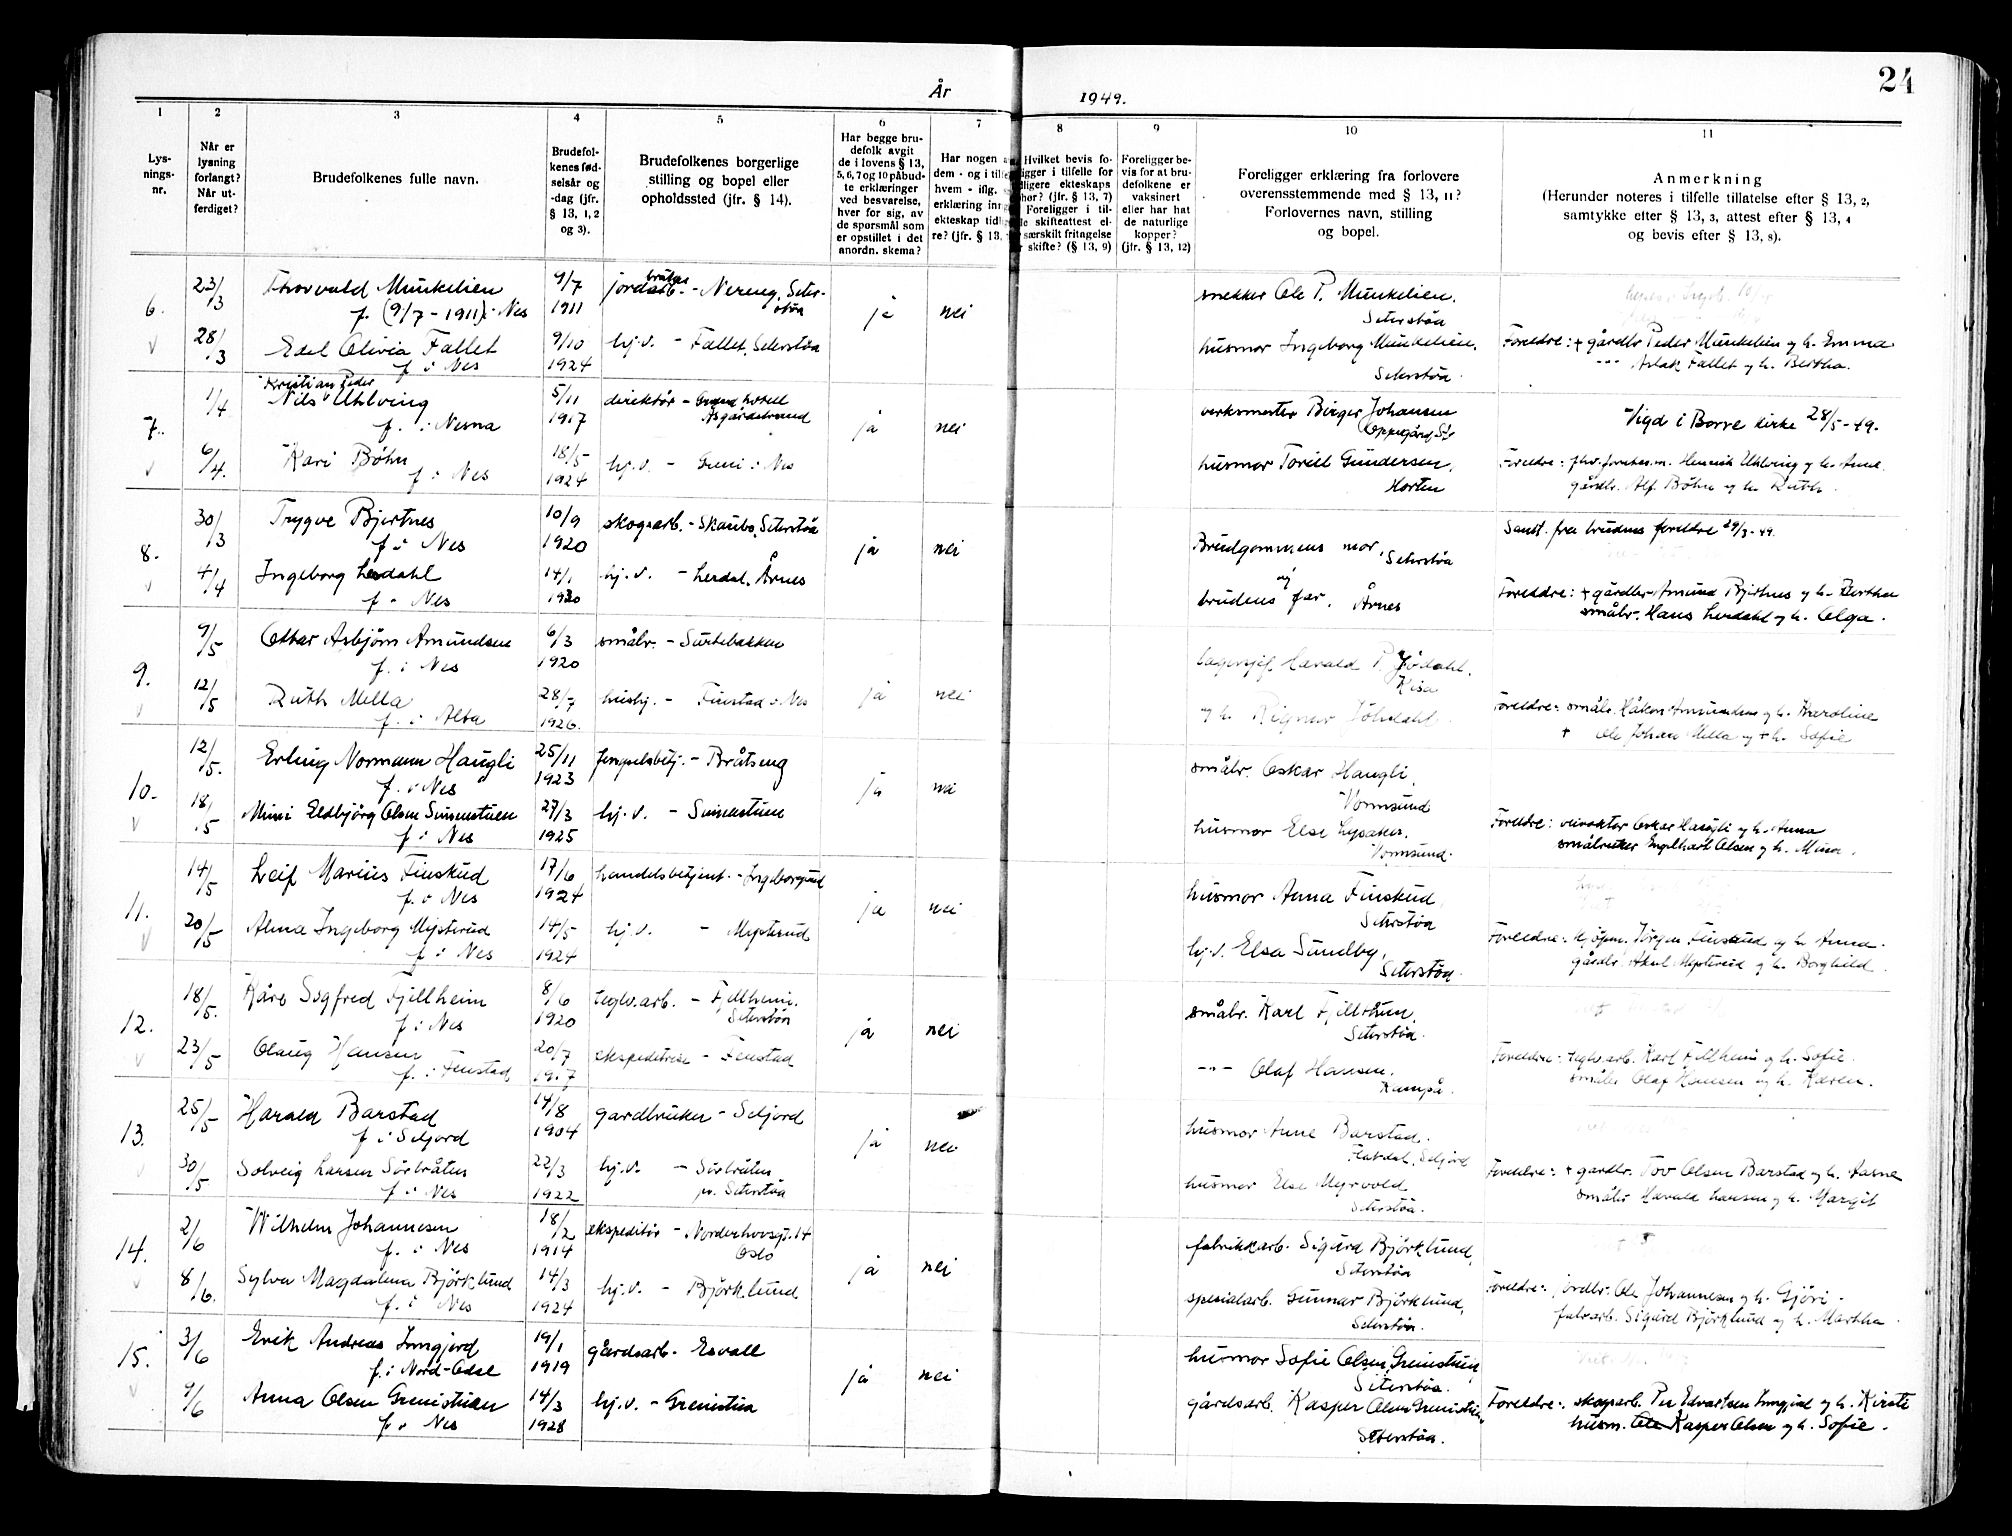 År 1949.
24
1
2
3
4
5
6
7
8
9
10
11
Lys-
nings-
nr.
Når er
lysning
forlangt?
Når ut-
ferdiget?
Brudefolkenes fulle navn.
Brudefol-
kenes fød-
selsår og
-dag (jfr.
§ 13, 1, 2
og 3).
Brudefolkenes borgerlige
stilling og bopel eller
opholdssted (jfr. § 14).
Har begge bru-
defolk avgit
de i lovens § 13,
5, 6, 7 og 10 påbud-
te erklæringer
ved besvarelse,
hver for sig, av
de spørsmål som
er opstillet i det
anordn. skema?
Har nogen
dem - og i
hvem - iflg.
erklæring
ekteskap
re? (jfr. § 13,
Hvilket bevis fo-
ligger i tilfelle for
ligere ekteskaps
(jfr. § 13, 7)
Foreligger i til-
skifteattest el-
særskilt fritagelse
skifte? (§ 13, 9)
Foreligger be-
vis for at bru-
defolkene er
vaksinert
eller har hat
de naturlige
kopper?
(jfr. § 13, 12)
Foreligger erklæring fra forlovere
overensstemmende med § 13, 11?
Forlovernes navn, stilling
og bopel.
Anmerkning
(Herunder noteres i tilfelle tillatelse efter § 13, 2,
samtykke efter § 13, 3, attest efter § 13, 4
og bevis efter § 13, 8).
6.
23/3
Thorvald Munkelien
f. (9/7 - 1911) i Nes
9/7
1911
- Nereng, Seter-
støa
ja
nei
snekker Ole P. Munkelien,
Seterstøa
28/3
Edel Olivia Fallet
f i Nes
9/10
1924
hj.v. - Fallet, Seterstøa
husmor Ingeborg Munkelien,
Seterstøa.
Foreldre: + gårdbr Peder Munkelien og h. Emma
--- Aslak Fallet og h. Bertha.
7.
1/4
Kristian Peder
Nils Uhlving
f. i Nesna
5/11
1917
direktør - Grand hotell
Åsgårdstrand
ja
nei
verksmester Birger Johansen
Oppegård St
Vigd i Borre kirke 28/5-49.
6/4.
Kari Bøhn
f i Nes
18/5
1924
hj.v. - Greni i Nes
husmor Toril Gundersen,
Horten
Foreldre: Henrik Uhlving og h. Anne.
gårdbr. Alf Bøhn og h. Ruth.
8.
30/3
Trygve Bjertnes
f i Nes
10/9
1920
skogsarb. - Skaubo, Seterstøa
ja
nei
Brudgommens mor, Seterstøa
Samt. fra brudens foreldre 29/3-49.
4/4
Ingeborg Lerdahl
f - Nes
14/1
1930
hj.v. - Lerdal, Årnes
og
brudens far, Årnes
Foreldre: + gårdbr Amund Bjertnes og h. Berthe
småbr. Hans Lerdahl og h. Olga.
9.
9/5
Ottar Asbjørn Amundsen
f. i Nes
6/3
1920
småbr. - Surtebakken
ja
nei
lagersjef Harald P. Jødahl,
Kisa
12/5
Ruth Mella
f. i Alta
28/7
1926.
hushj. - Finstad i Nes
og h. Rignor Jødahl.
Foreldre: småbr. Håkon Amundsen og h. Karoline
+ Ole Johan Mella og + h. Sofie
10.
12/5.
Erling Normann Haugli
f. i Nes
25/11
1923
fengselsbetj. - Bråteng
ja
nei
småbr. Oskar Haugli,
Vormsund
18/5
Mimi Eldbjørg Olsen Simenstuen
f i Nes
27/3
1925
hj.v. - Simenstuen
husmor Else Lysaker,
Vormsund.
Foreldre: veivokter Oskar Haugli og h. Anna
småbruker Engelhart Olsen og h. Mina.
11.
14/5
Leif Marius Finskud
f. i Nes
17/6
1924
handelsbetjent. - Ingeborgrud
ja
nei
husmor Anna Finskud,
Seterstøa
20/5
Alma Ingeborg Mysterud
f i Nes
14/5
1924
hj.v. - Mysterud
hj.v. Elsa Sundby,
Seterstøa.
Foreldre: kjøpm. Jørgen Finskud og h. Anna.
gårdbr. Aksel Mysterud og h. Borghild.
12.
18/5.
Kåre Sigfred Fjellheim
f i Nes
8/6
1920
teglv.arb. - Fjellheim.
Seterstøa
ja
nei
småbr. Karl Fjellheim,
Seterstøa.
23/5
Olaug Hansen
f. i Fenstad
20/7
1927
ekspeditrise - Fenstad
-"- Olaf Hansen,
Rampå.
Foreldre: teglv.arb. Karl Fjellheim og h. Sofie.
småbr Olaf Hansen og h. Karen.
13.
25/5
Harald Barstad
f i Seljord
14/8
1904
gardbruker - Seljord
ja
nei
husmor Anne Barstad.
Flatdal, Seljord
30/5
Solveig Larsen Sørbråten
f i Nes
22/3
1922
hj.v. - Sørbråten
pr. Seterstøa
husmor Else Myrvold
Seterstøa.
Foreldre: + gardbr. Tov Olsen Barstad og h. Aasne
småbr Harald Larsen og h. Margit
14.
2/6
Wilhelm Johannesen
f. i Nes
18/2
1914
ekspeditør - Norderhovsgt. 14
Oslo
ja
nei
fabrikkarb. Sigurd Bjørklund,
Seterstøa
8/6.
Sylva Magdalena Bjørklund
f. i Nes
14/3
1924
hj.v. - Bjørklund
spesialarb. Gunnar Bjørklund,
Seterstøa.
Foreldre: jordbr. Ole Johannesen og h. Gjøri -
fabrarb. Sigurd Bjørklund og h. Martha.
15.
3/6
Erik Andreas Inngjerd
f. i Nord-Odal
19/1
1919
gårdsarb. Esvall
ja
nei
husmor Sofie Olsen Grenistuen,
Seterstøa.
9/6
Anna Olsen Grenistuen
f i Nes
14/3
1928
hj.v. - Grenistua
gårdsarb. Kasper Olsen Grenistuen,
Seterstøa.
Foreldre: skogsarb. Per Edvartsen Inngjerd og h. Kirsti
husm. Ole Kasper Olsen og h. Sofie.